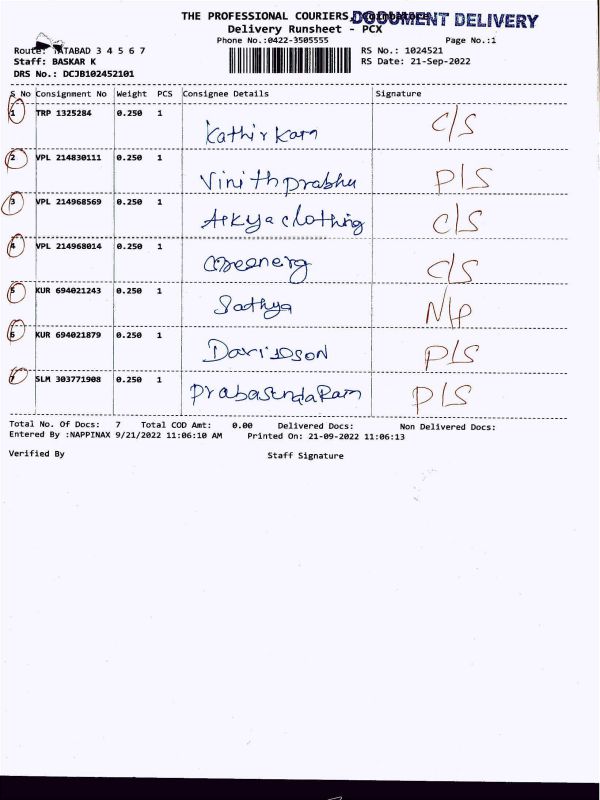 THE PROFESSIONAL COURIERS, DOCUMENT DELIVERY
Delivery Runsheet - PCX
Phone No.:0422-3505555 Page No.:1
Route: TATABAD 3 4 5 6 7 RS No.: 1024521
Staff: BASKAR K RS Date: 21-Sep-2022
DRS No.: DCJB102452101
S No Consignment No Weight PCS Consignee Details Signature
1 TRP 1325284 0.250 1 C/S
2 VPL 214830111 0.250 1 Vinithprabhu P/S
3 VPL 214968569 0.250 1 clothing C/S
4 VPL 214968014 0.250 1 C/S
5 KUR 694021243 0.250 1 Sathya N/P
6 KUR 694021879 0.250 1 P/S
7 SLM 303771908 0.250 1 P/S
Total No. Of Docs: 7 Total COD Amt: 0.00 Delivered Docs: Non Delivered Docs:
Entered By :NAPPINAX 9/21/2022 11:06:10 AM Printed On: 21-09-2022 11:06:13
Verified By Staff Signature